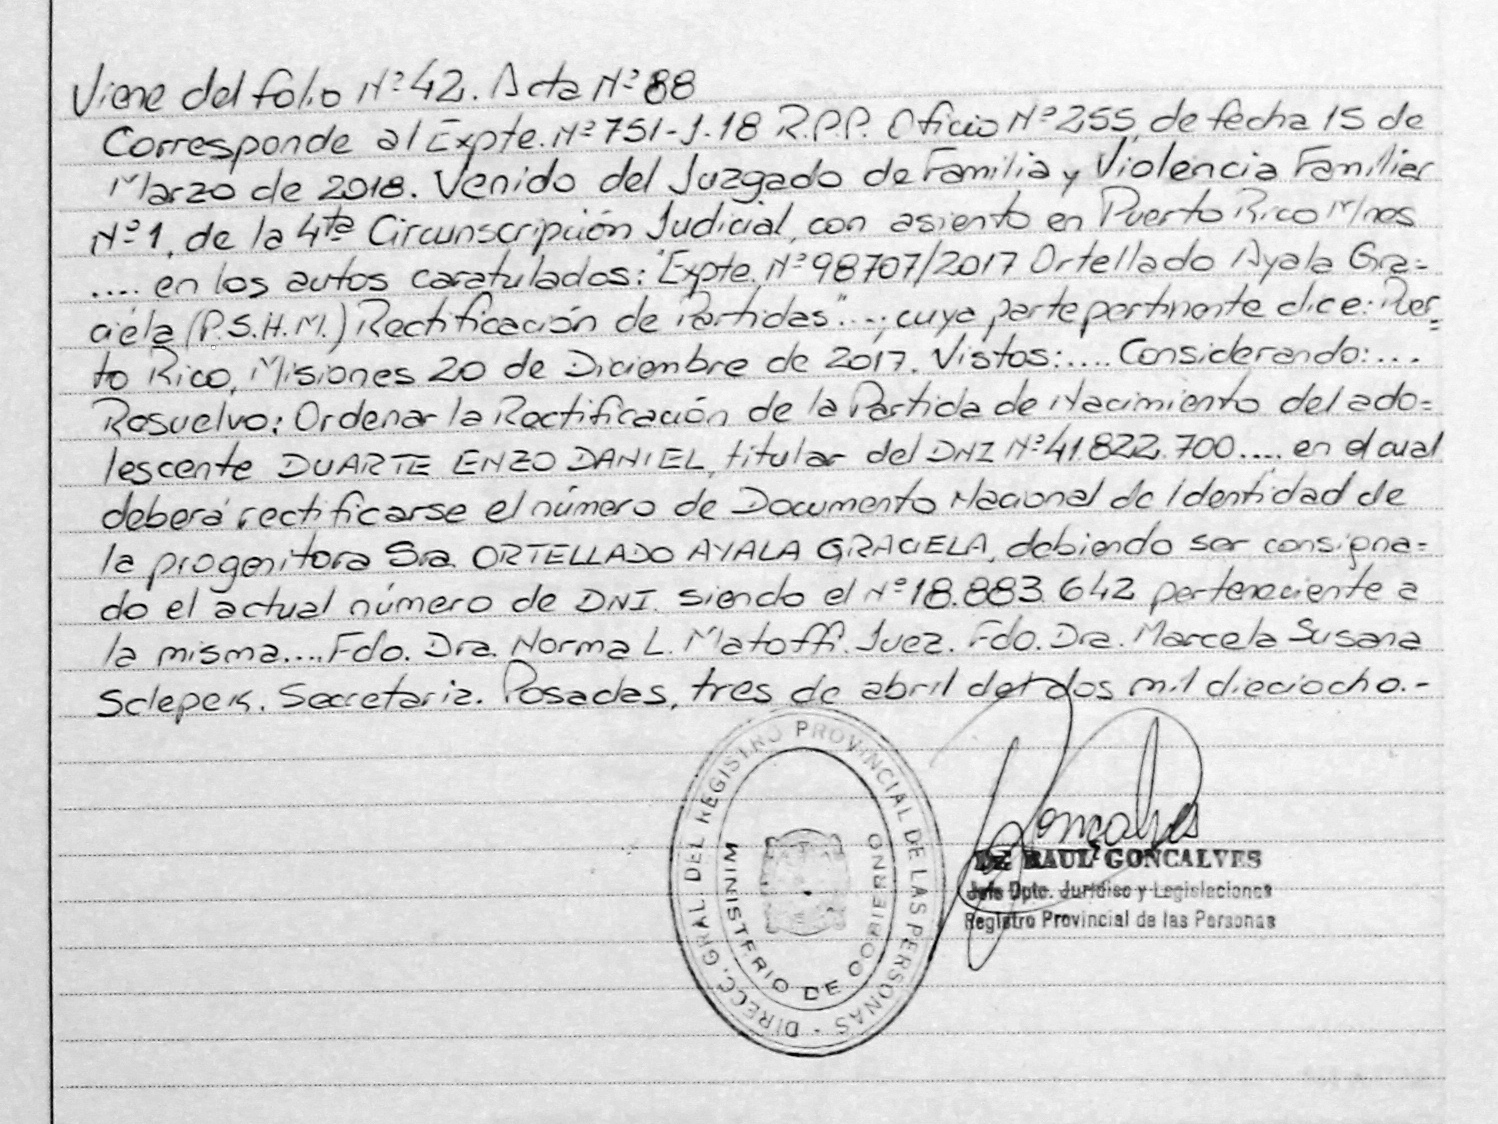 Viene del folio Nº 42. Acta Nº 88
Corresponde al Expte. Nº 751-J-18 R.P.P. Oficio Nº 255, de fecha 15 de
Marzo de 2018. Venido del Juzgado de Familia y Violencia Familiar
Nº 1, de la 4ta Circunscripción Judicial, con asiento en Puerto Rico M/nes
.... en los autos caratulados: "Expte. Nº 98707/2017 Ortellado Ayala Gra=
ciela (P.S.H.M.) Rectificación de Partidas"...; cuya parte pertinente dice: Puer=
to Rico, Misiones 20 de Diciembre de 2017. Vistos:.... Considerando:....
Resuelvo: Ordenar la Rectificación de la Partida de Nacimiento del ado=
lescente DUARTE ENZO DANIEL, titular del DNI Nº 41.822.700.... en el cual
deberá rectificarse el número de Documento Nacional de Identidad de
la progenitora Sra. ORTELLADO AYALA GRACIELA, debiendo ser consigna=
do el actual número de DNI. siendo el Nº 18.883.642 perteneciente a
la misma.... Fdo. Dra. Norma L. Matoffi. Juez. Fdo. Dra. Marcela Susana
Sclepek. Secretaria. Posadas, tres de abril del dos mil dieciocho.-
DIRECC. GRAL. DEL REGISTRO PROVINCIAL DE LAS PERSONAS -
MINISTERIO DE GOBIERNO
Goncalves
RAUL GONCALVES
Jefe Dpto. Jurídico y Legislaciones
Registro Provincial de las Personas